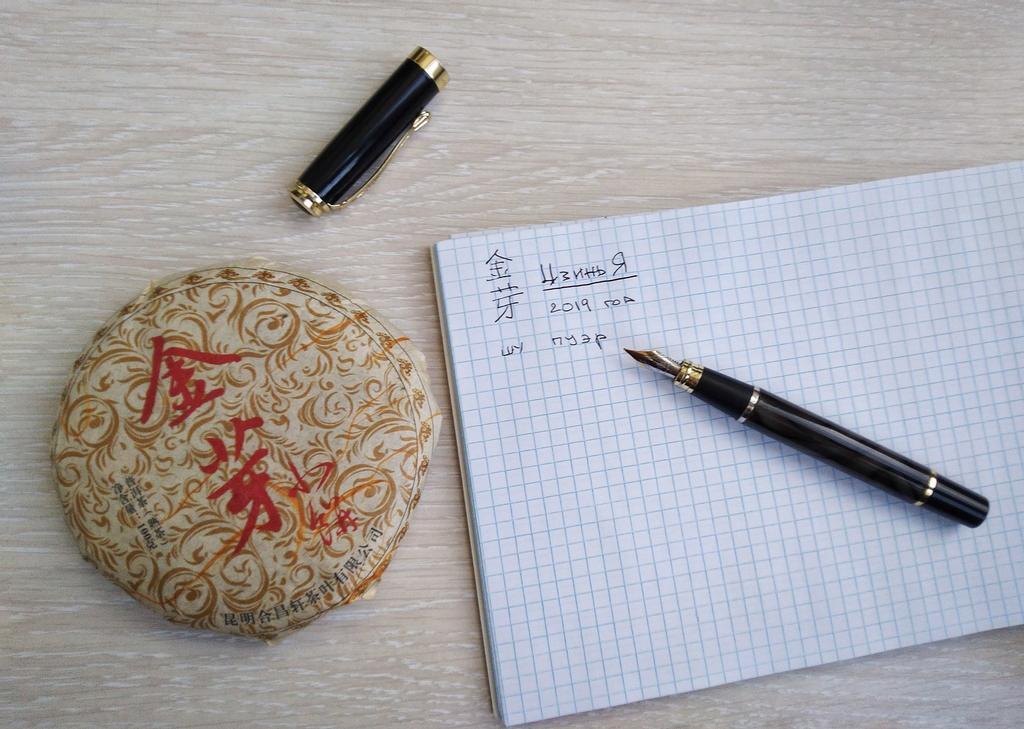 金芽
小饼
普洱茶(熟茶)
净含量:100克
昆明合昌轩茶叶有限公司
金芽
Цзинь Я
2019 год
шу пуэр